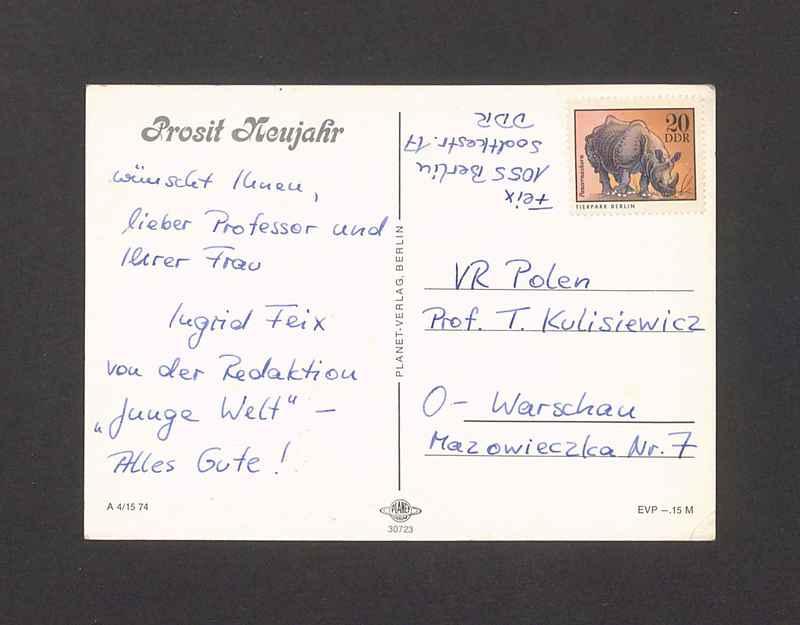 Prosit Neujahr
wünscht Ihnen,
lieber Professor und
Ihrer Frau
Ingrid Feix
von der Redaktion
„Junge Welt" –
Alles Gute!
A 4/15 74
PLANET-VERLAG, BERLIN
PLANET
30723
Feix
1055 Berlin
Sodtkestr. 17
DDR
20
DDR
Panzernashorn
TIERPARK BERLIN
VR Polen
Prof. T. Kulisiewicz
O- Warschau
Mazowieczka Nr. 7
EVP –.15 M